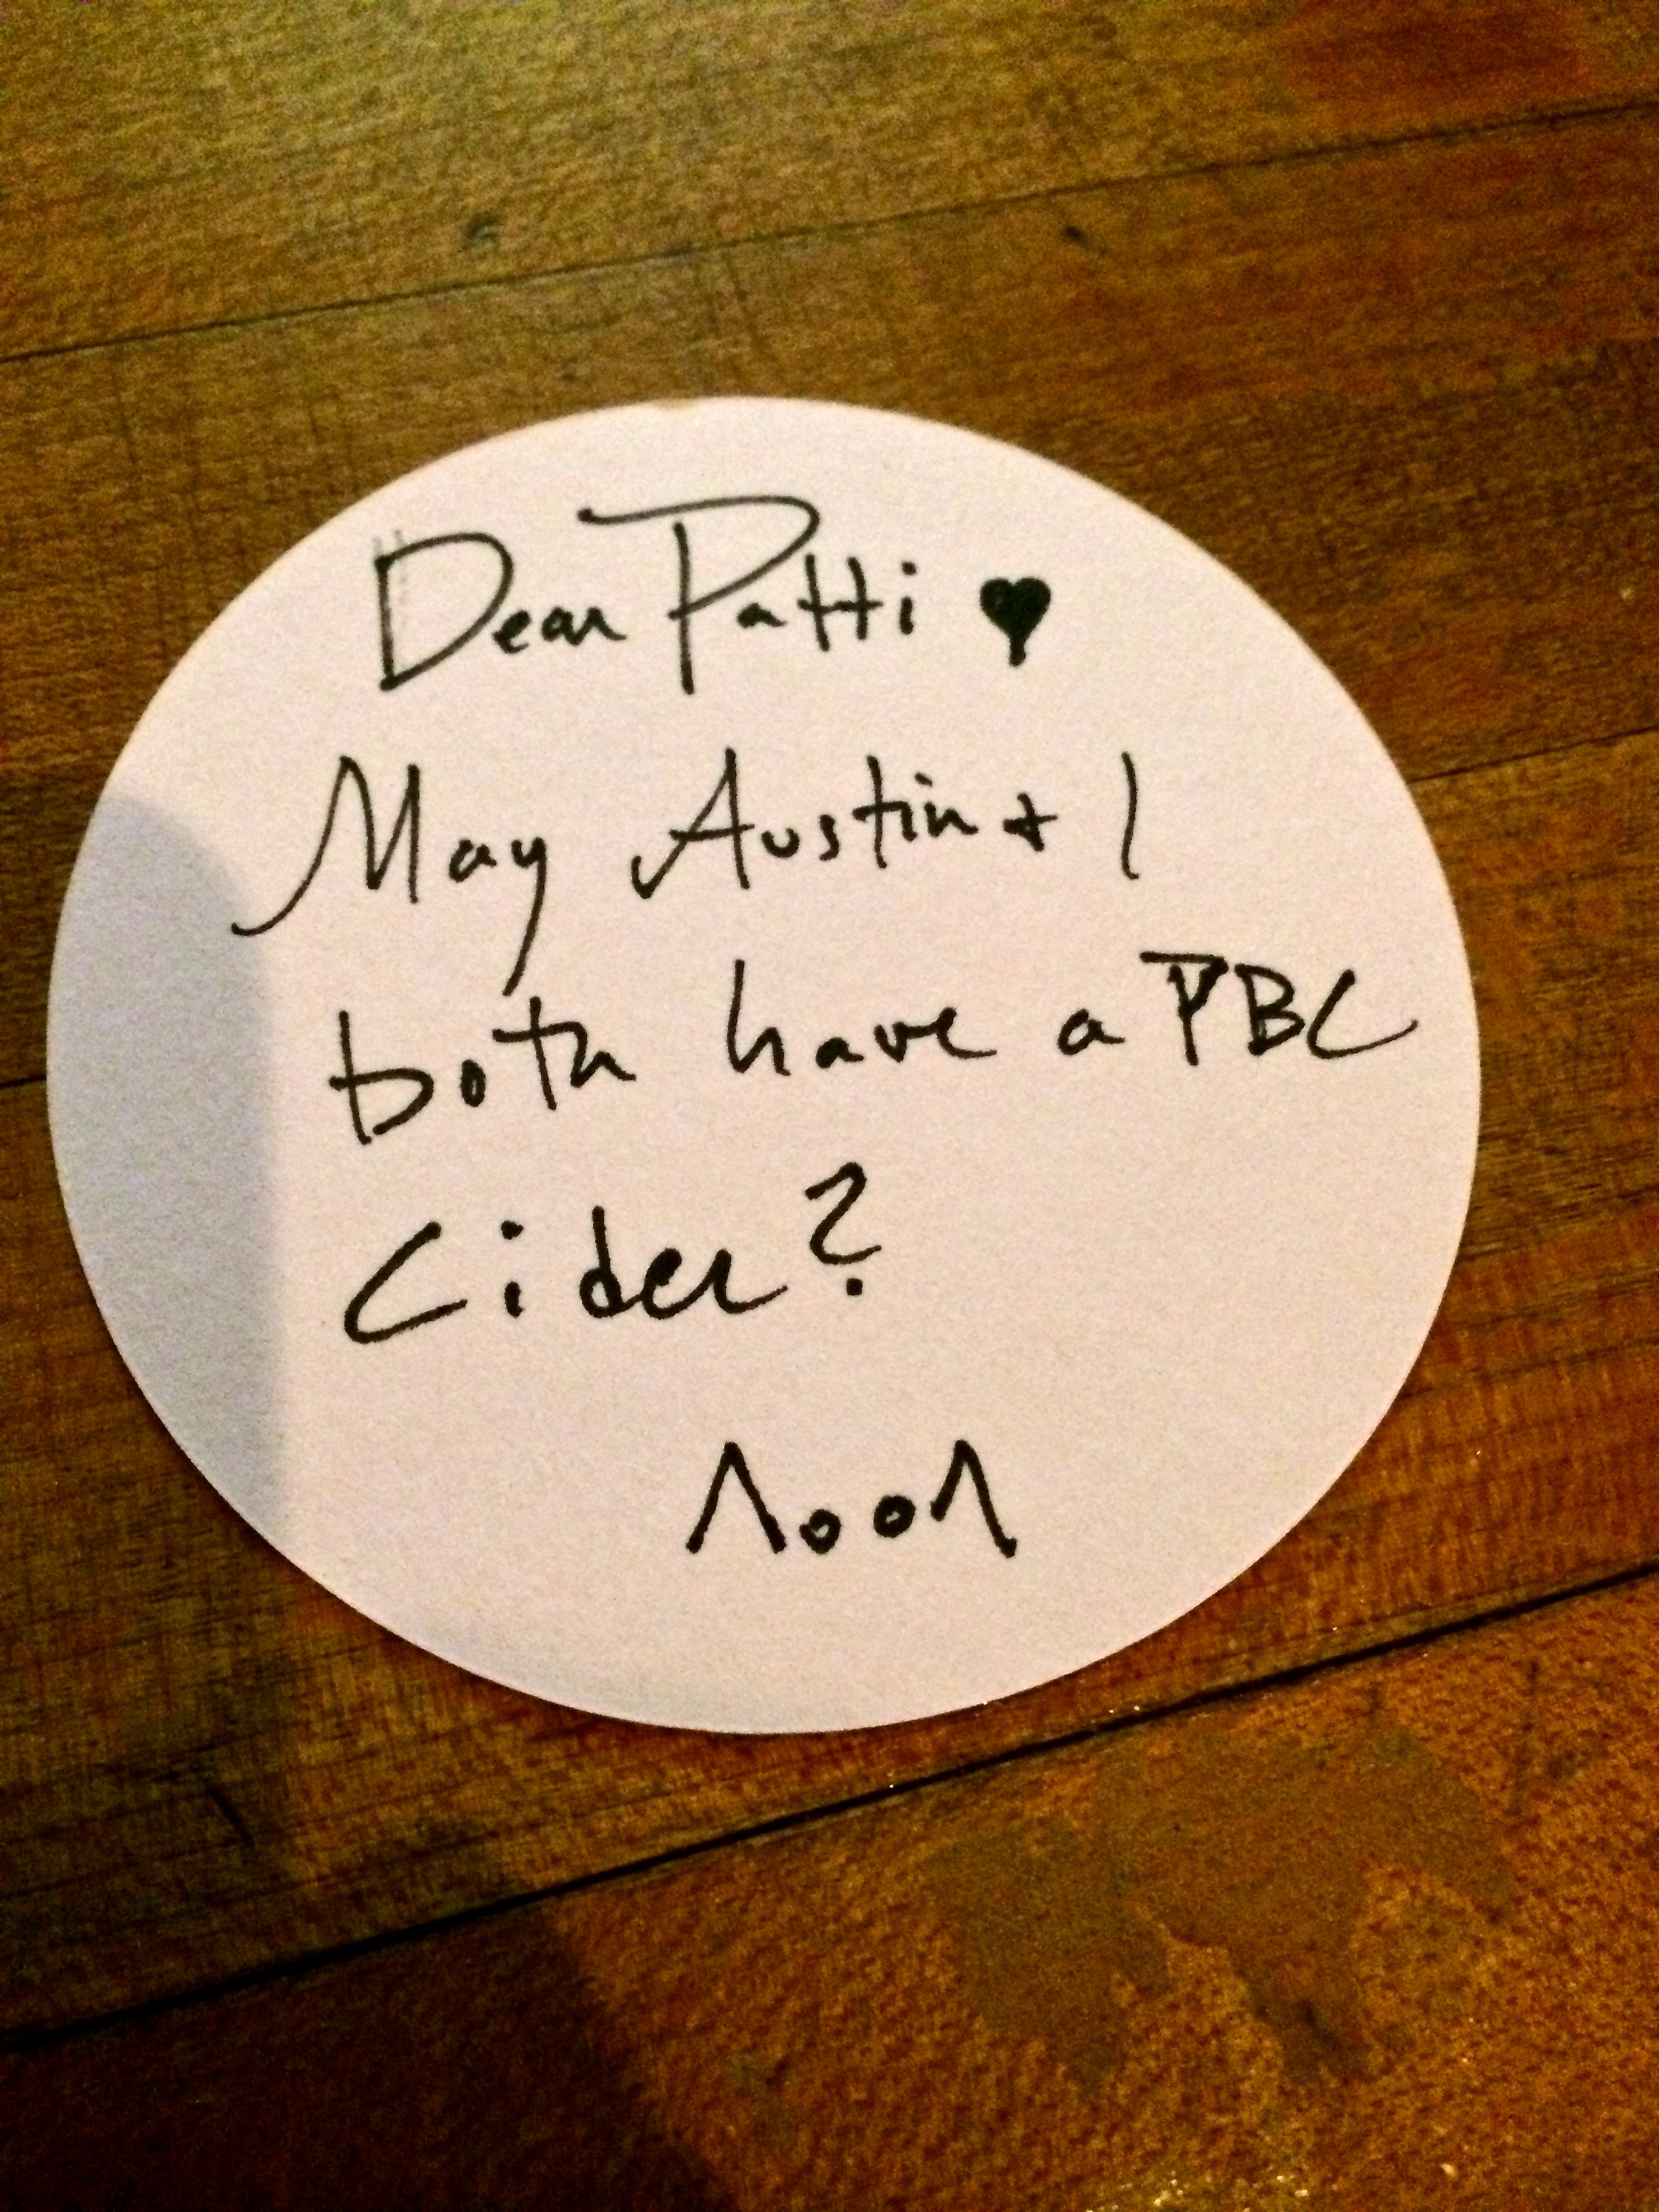 Dear Patti ♥
May Austin + I
both have a PBC
Cider?
^oo^